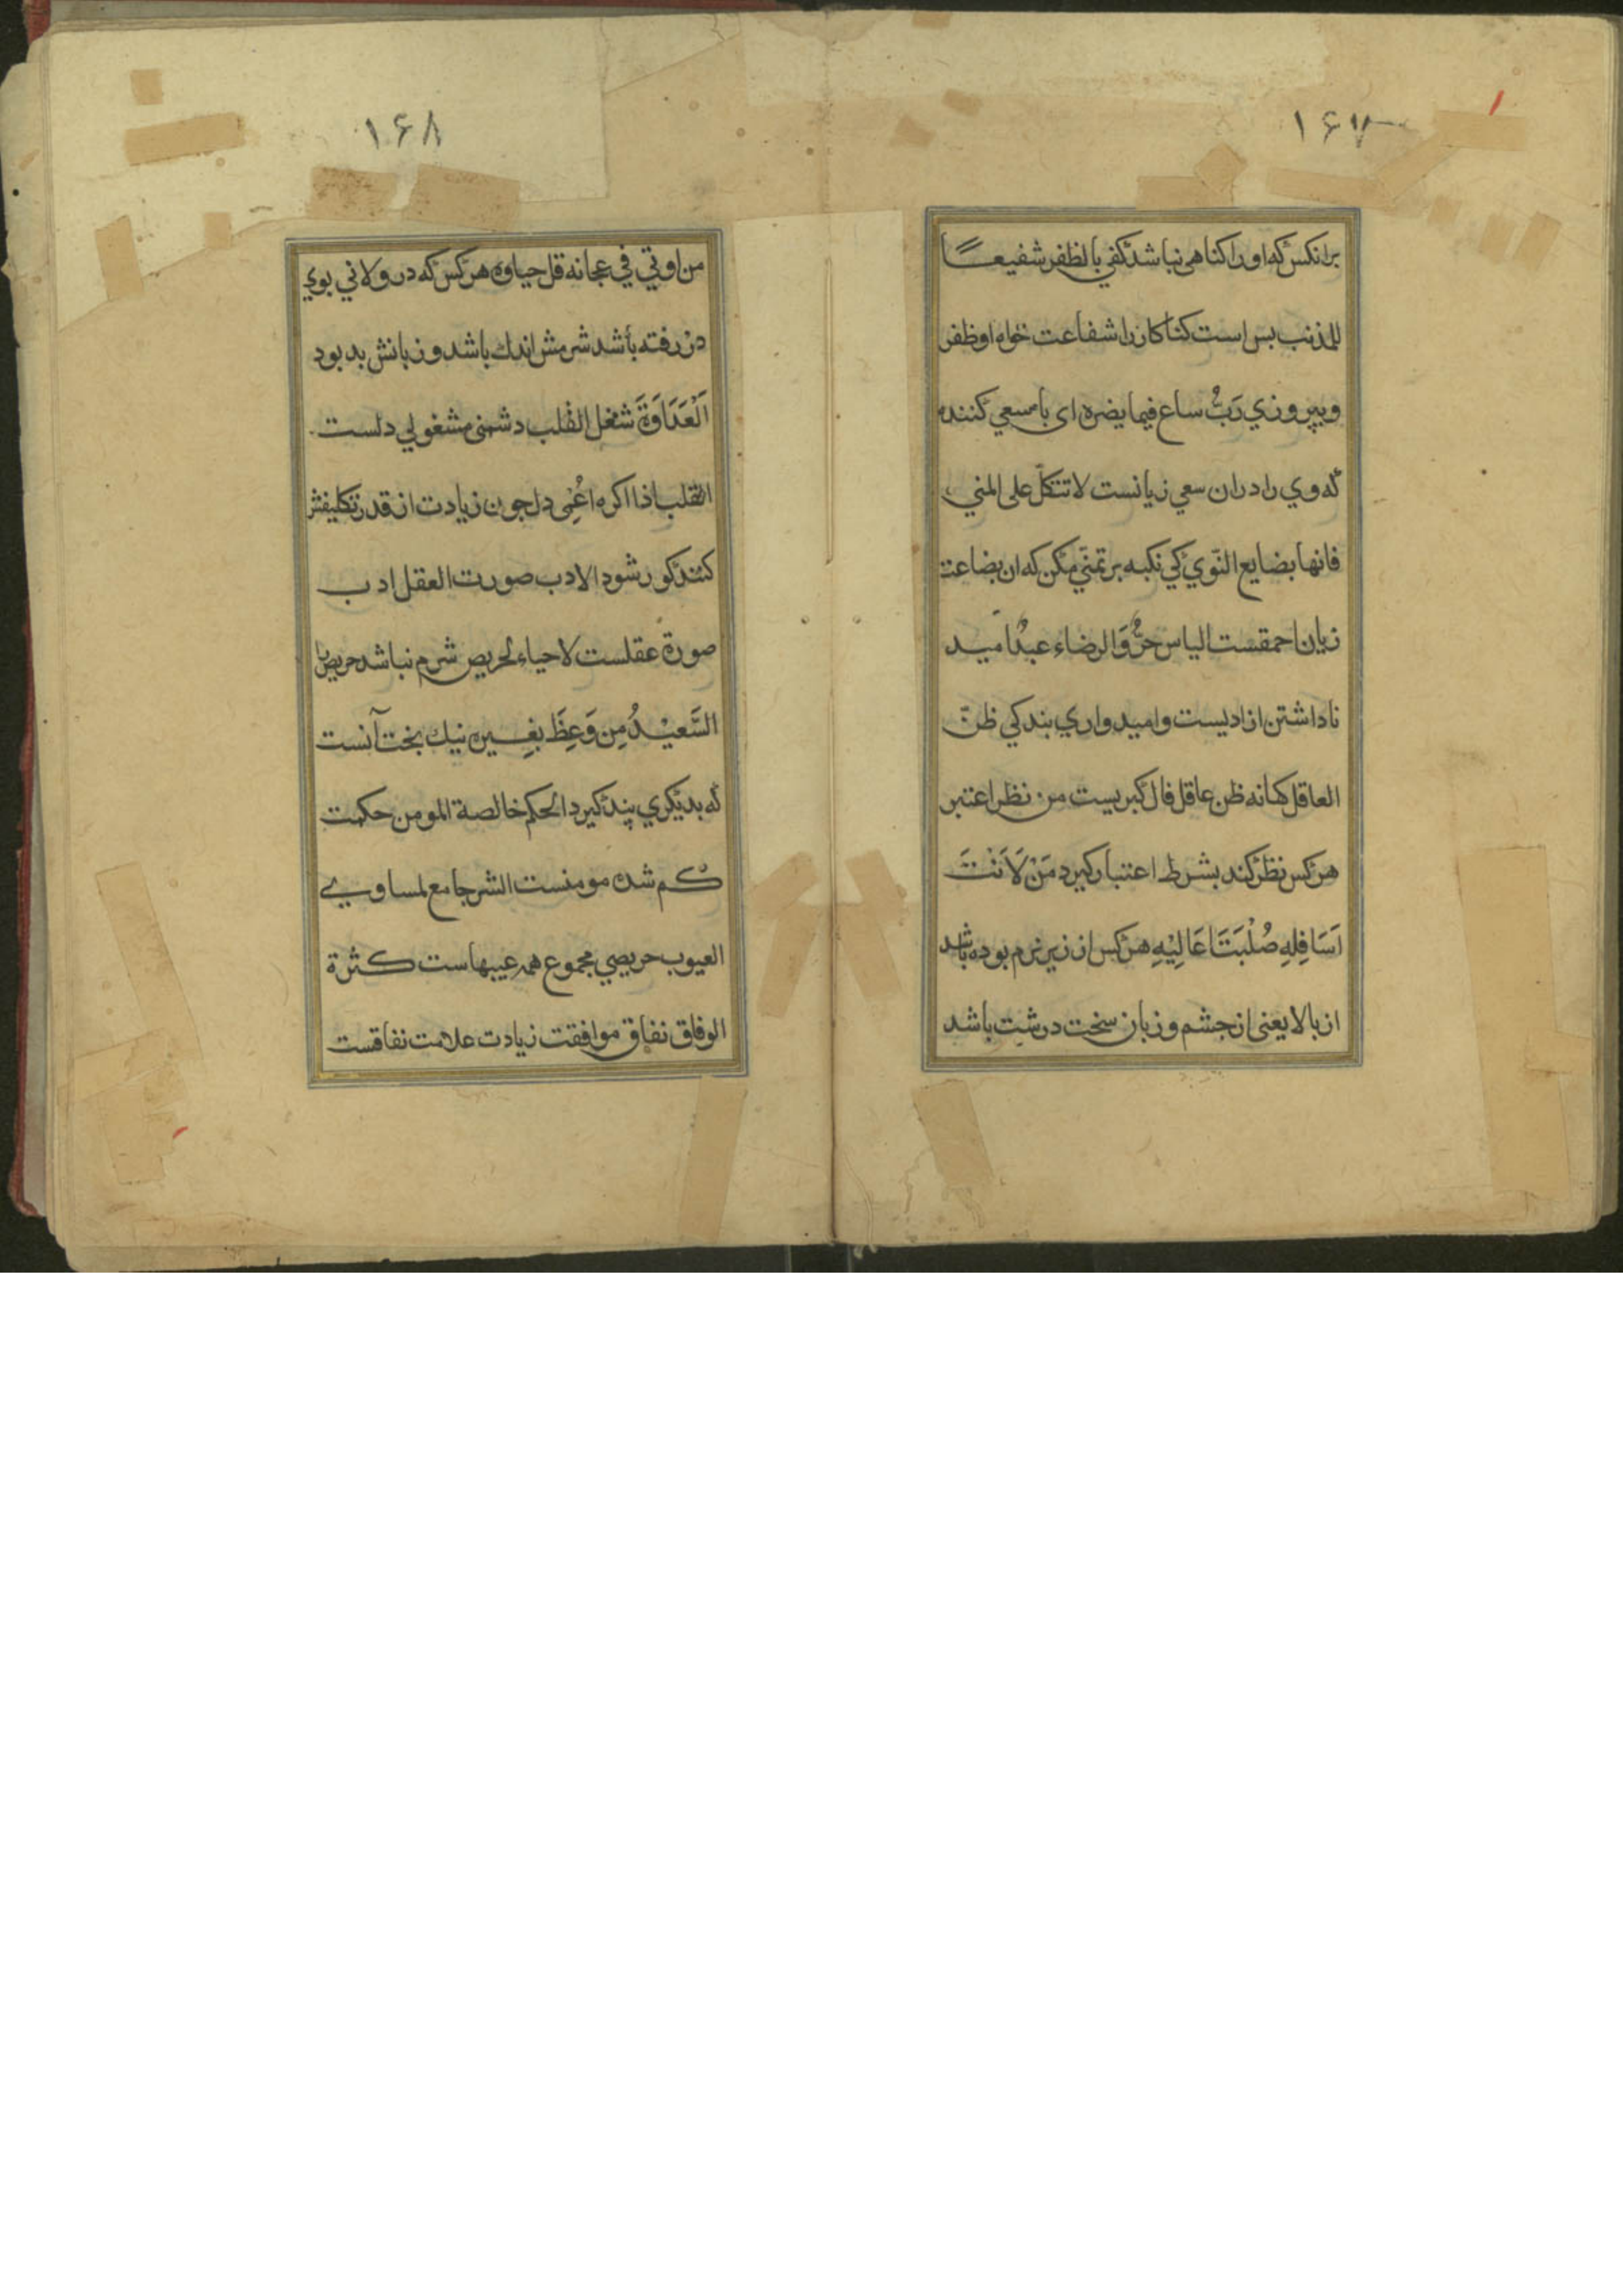 ۱۶۷
برانکس که اورا کناهی نباشد کفی بالظفر شفیعًا
للمذنب بس است کناکارانرا شفاعت خواه او ظفر
و بپروزی رَبُّ ساع فیما یضره ای با سعی کننده
که وی را دران سعی زیانست لا تتکل علی المنی
فانها بضایع النّوی کی نکیه بر تمنّی مکن که ان بضاعت
زیان احمقست الیاس حرٌّ وَالرضاء عبدٌ امید
ناداشتن ازادیست و امیدواری بندکی ظنّ
العاقل کهانه ظن عاقل فال کبریست من نظر اعتبر
هر کس نظر کند بشرط اعتبار کیرد مَنْ لَانَتْ
اَسَافِلِهِ صُلْبَتَا عَالِیْهِ هر کس از زیر نرم بوده باشد
از بالا یعنی از جشم و زبان سخت درشت باشد
۱۶۸
من اوتی فی عجانه قل حیاوه هر کس که در ولانی بوی
در رفته باشد شرمش اندك باشد و زبانش بد بود
اَلْعَدَاوَةَ شغل القلب دشمنی مشغولی دلست
القلب اذا اکره اعُمِی دل جون زیادت از قدر تکلیفش
کنند کور شود الادب صورت العقل ادب
صورة عقلست لا حیاء لحریص شرم نباشد حریص را
السَّعیْدُ مِن وَعِظَ بغِیره نیك بخت آنست
که بدیکری پند کیرد الحکم خالصة المومن حکمت
کم شده مومنست الشر جامع لمساوی
العیوب حریصی مجموع همه عیبهاست کثرة
الوفاق نفاق موافقت زیادت علامت نفاقست